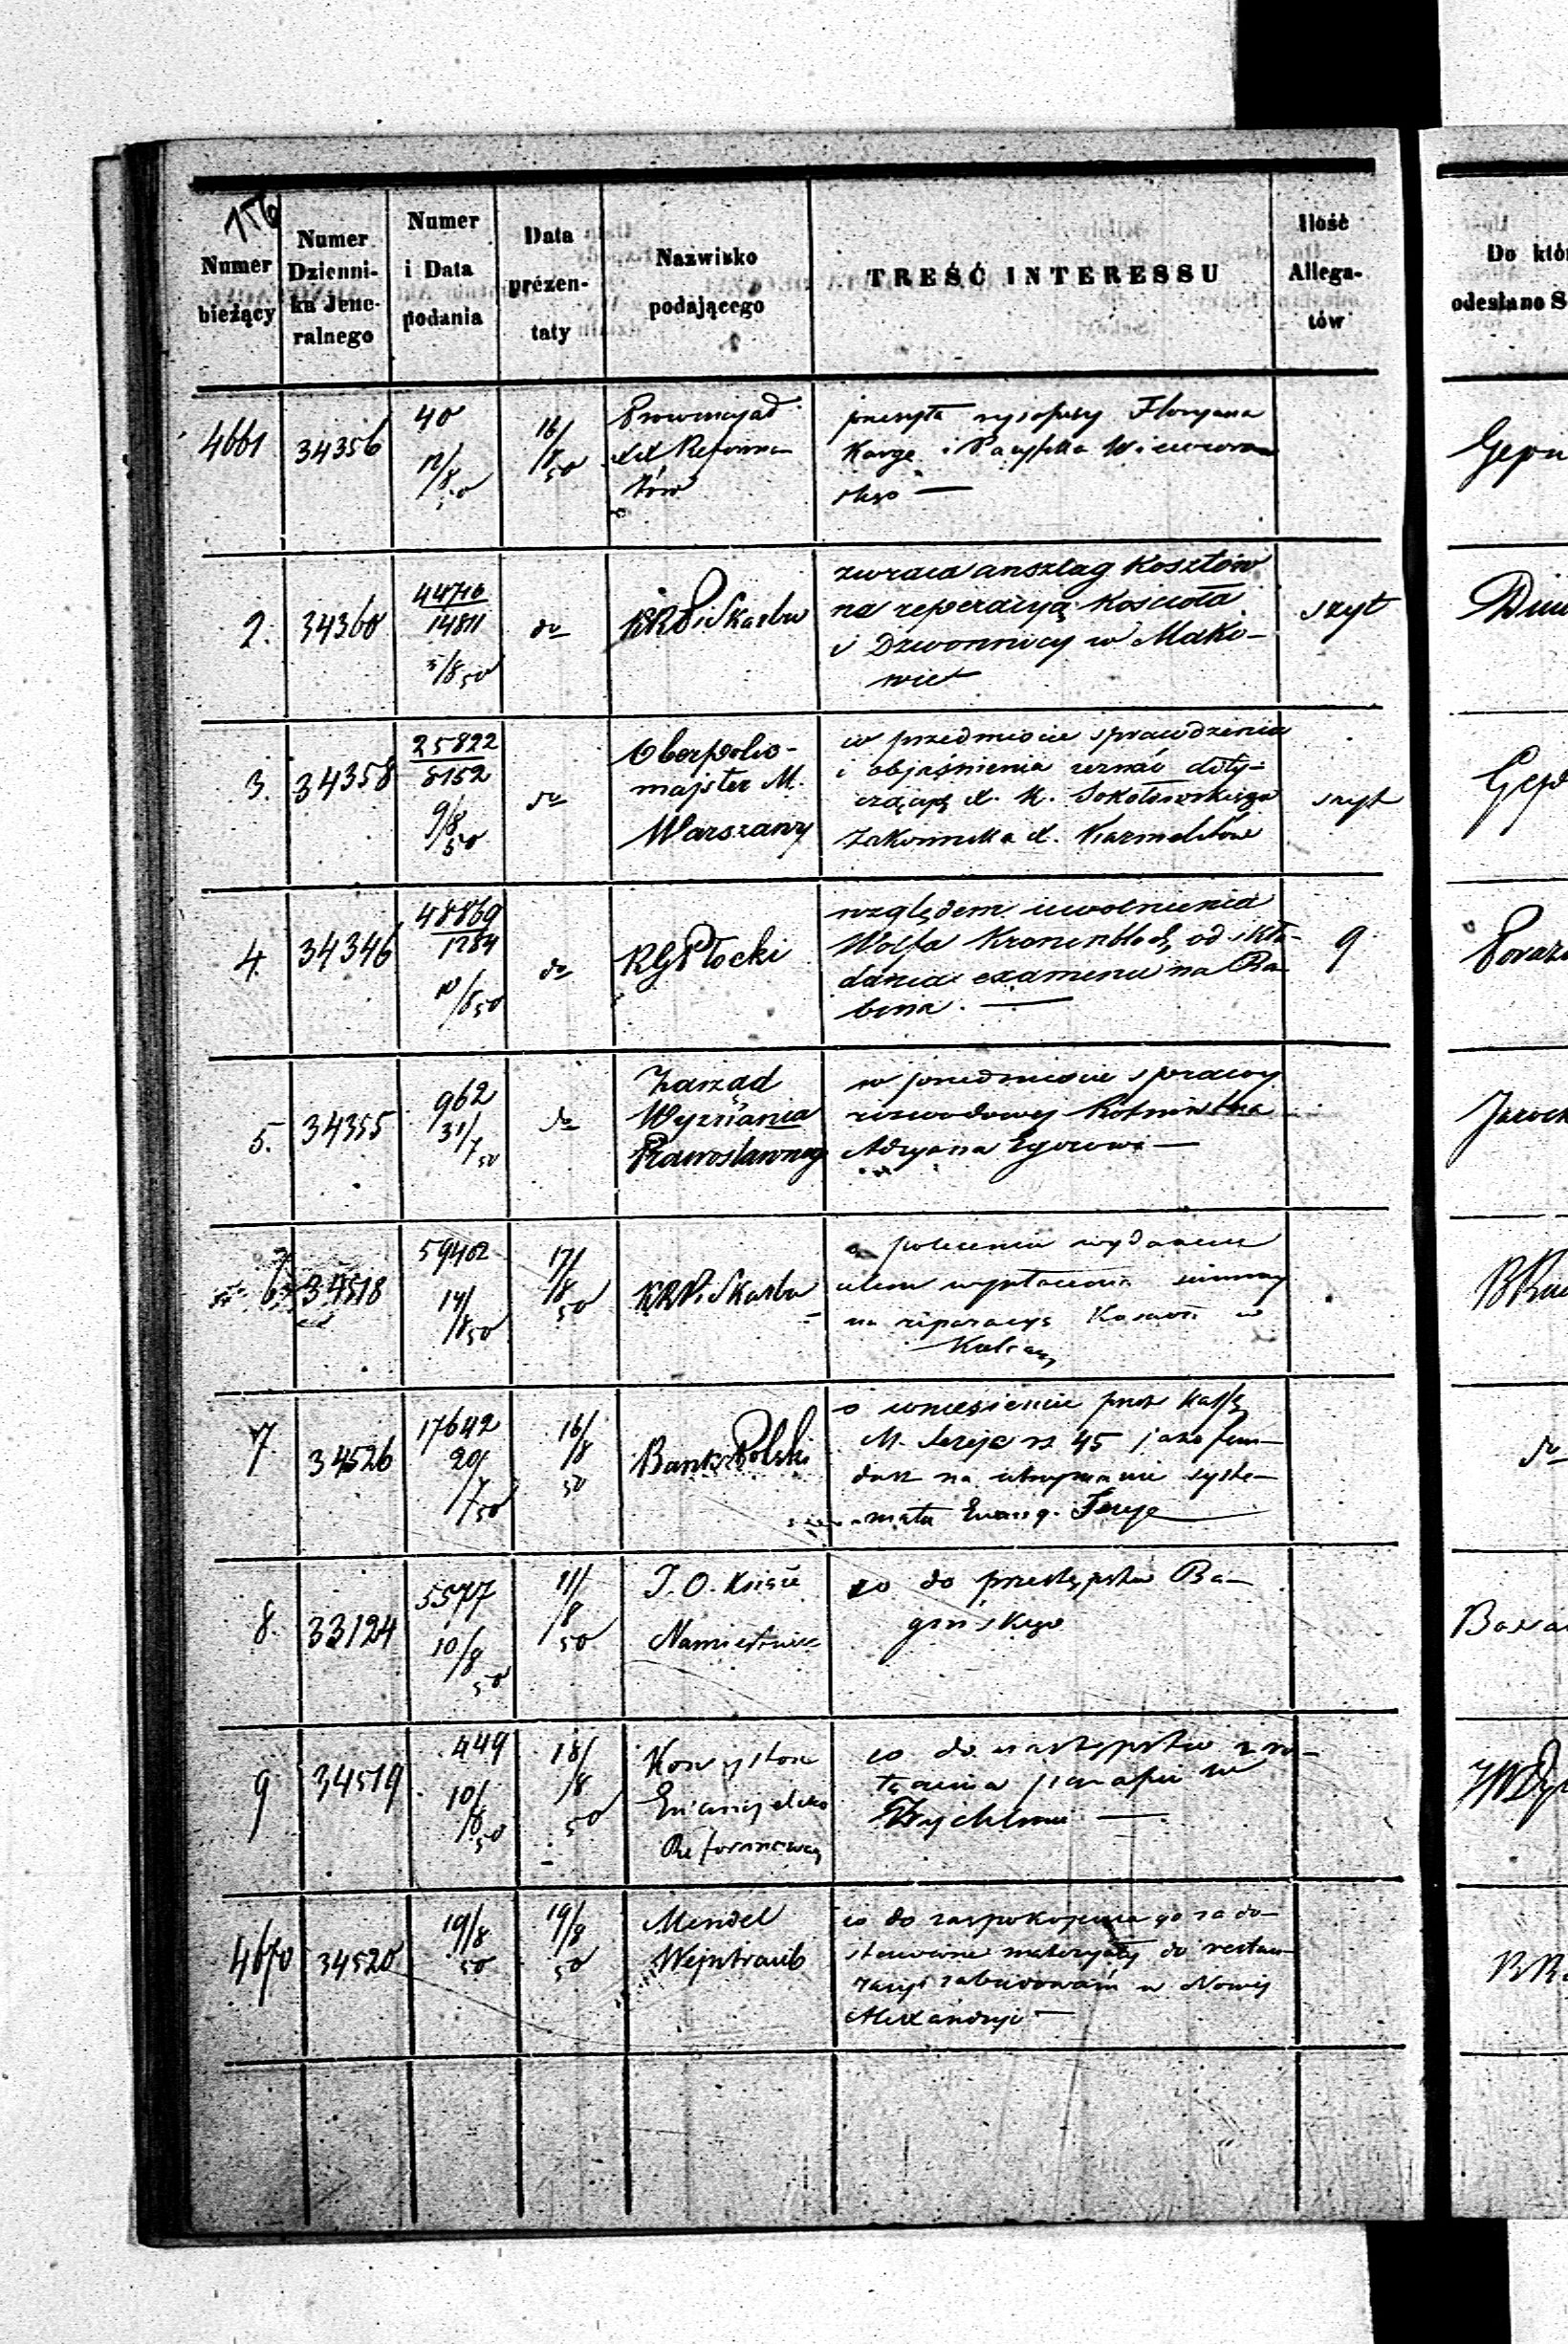 156
Numer bieżący
Numer Dzienni- ka Jene- ralnego
Numer i Data podania
Data prezen- taty
Nazwisko podającego
TREŚĆ INTERESSU
Ilość Allega- tów
Do któ
odesłano S
4661 34356 40 12/8 50 16/8 50
Prowincyał
XX Reforma-
tów
przesyła rysopisy Floryana
Karge i
skgo —
2. 34360 44716/14811 5/8 50 do KRPiSkarbu
zwraca anszlag kosztów
na reperacyą kościoła
i Dzwonnicy w Mako-
wie
szyt
3. 34358 25822/8152 9/8 50 do
Oberpolic-
majster M.
Warszawy
w przedmiocie sprawdzenia
i objaśnienia zeznań doty-
czących X. K. Sokołowskiego
Zakonnika X. Karmelitów
szyt
4. 34346 48869/1284 10/8 50 do RGPłocki
względem uwolnienia
Wolfa Kronenbloch od skła-
dania examenu na Ra-
bina. —
9
5. 34355 962 31/7 50 do
Zarząd
Wyznania
Prawosławneg
w przedmiocie sprawy
rozwodowej Rotmistrza
Adryana Egorowi —
6 34518 59402 14/8 50 17/8 50 KRPiSkarbu
o polecenie wydania
celem wypłacenia summy
na reparacyę Koszar w
7 34526 17642 20/7 50 16/8 50 Bank Polski
o wniesienie przez Kassę
M. rs 45 jako fun-
dusz na utrzymanie syste-
mata Ewang.
8. 33124 5577 10/8 50 11/8 50
J. O. Książe
Namiestnik
co do przestępstw Ba-
gińskiego
9 34519 449 10/8 50 18/8 50
Konsystorz
Ewangelicko
Reformowany
co do
parafii w
Żychlinie —
4670 34520 19/8 50 19/8 50
Mendel
Wejntraub
co do zaspokojenia go za do-
stawione materyały do restau-
racyi zabudowań w Nowej
Alexandryi —
do